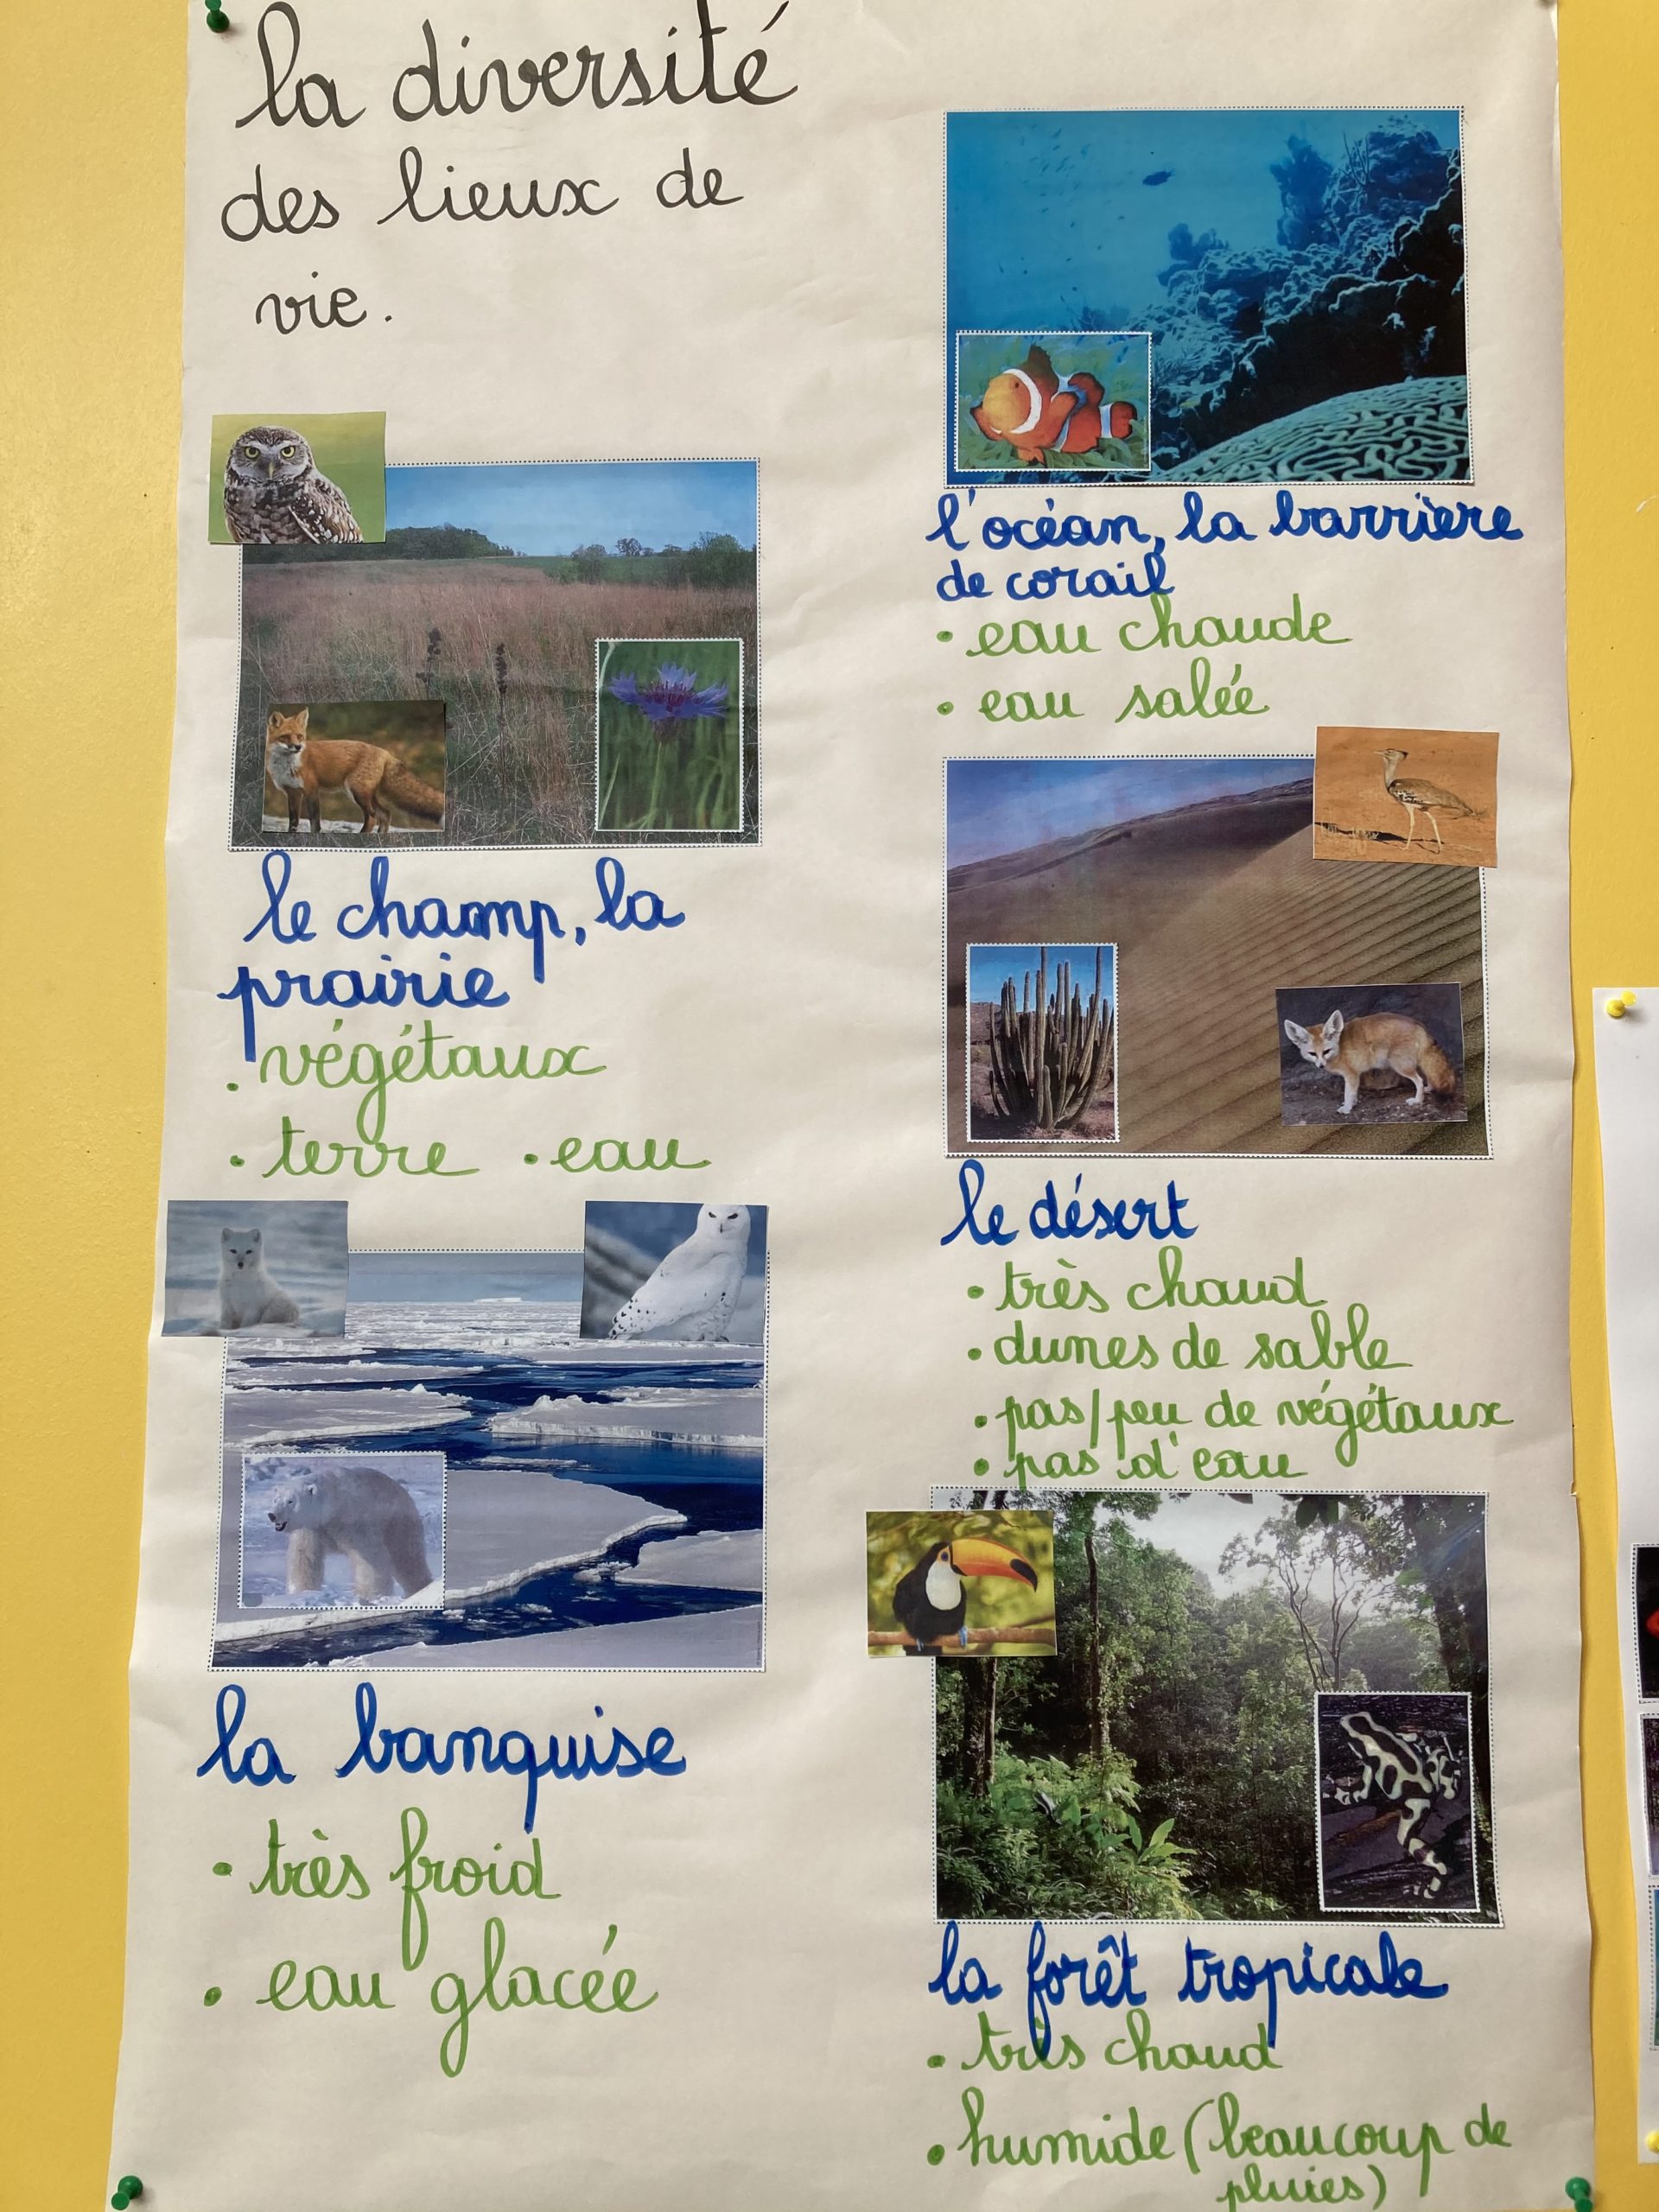 la diversité
des lieux de
vie.
le champ, la
prairie
. végétaux
. terre . eau
la banquise
. très froid
. eau glacée
l'océan, la barrière
de corail
. eau chaude
. eau salée
le désert
. très chaud
. dunes de sable
. pas/peu de végétaux
. pas d'eau
la forêt tropicale
. très chaud
. humide (beaucoup de
pluies)